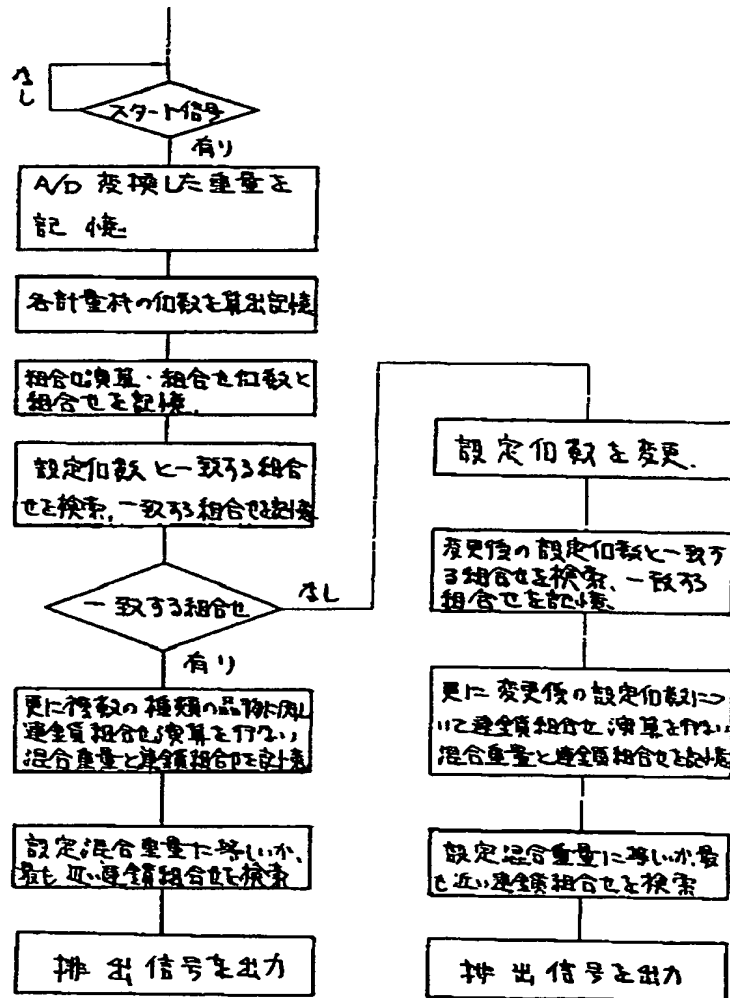 なし
スタート信号
有り
A/D 変換した重量を
記 憶
各計量桝の個数を算出記憶
組合せ演算・組合せ個数と
組合せを記憶.
設定個数と一致する組合
せを検索、一致する組合せを記憶
一致する組合せ
なし
有り
更に複数の種類の品物に関し
連鎖組合せ演算を行ない
混合重量と連鎖組合せを記憶
設定混合重量に等しいか、
最も近い連鎖組合せを検索
排出信号を出力
設定個数を変更.
変更後の設定個数と一致す
る組合せを検索、一致する
組合せを記憶.
更に変更後の設定個数につ
いて連鎖組合せ演算を行ない
混合重量と連鎖組合せを記憶
設定混合重量に等しいか、最
も近い連鎖組合せを検索
排出信号を出力